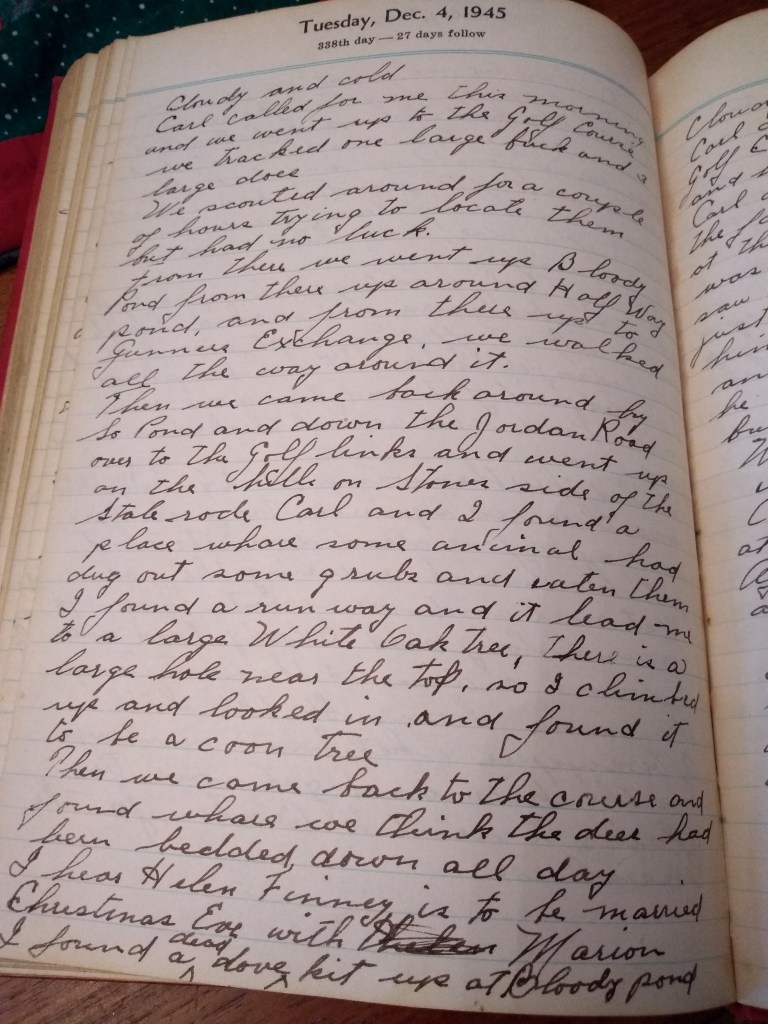 Tuesday, Dec. 4, 1945
338th day — 27 days follow
Cloudy and cold
Carl called for me this morning
and we went up to the Golf Course
we tracked one large buck and a
large does
We scouted around for a couple
of hours trying to locate them
but had no luck.
From there we went up Bloody
Pond from there up around Half Way
pond, and from there up to
Gunners Exchange, we walked
all the way around it.
Then we came back around by
So Pond and down the Jordan Road
over to the Golf links and went up
on the hills on Stones side of the
State rode Carl and I found a
place whare some animal had
dug out some grubs and eaten them
I found a run way and it lead me
to a large White Oak tree, there is a
large hole near the top, so I climbed
up and looked in and found it
to be a coon tree
Then we came back to the course and
found whare we think the deer had
been bedded down all day
I hear Helen Finney is to be married
Christmas Eve with Marion
I found a dead dove kit up at Bloody pond
Cloudy
Carl
Golf C
and
Carl
the
at th
was
saw
just
him
an
he
bu
W
at